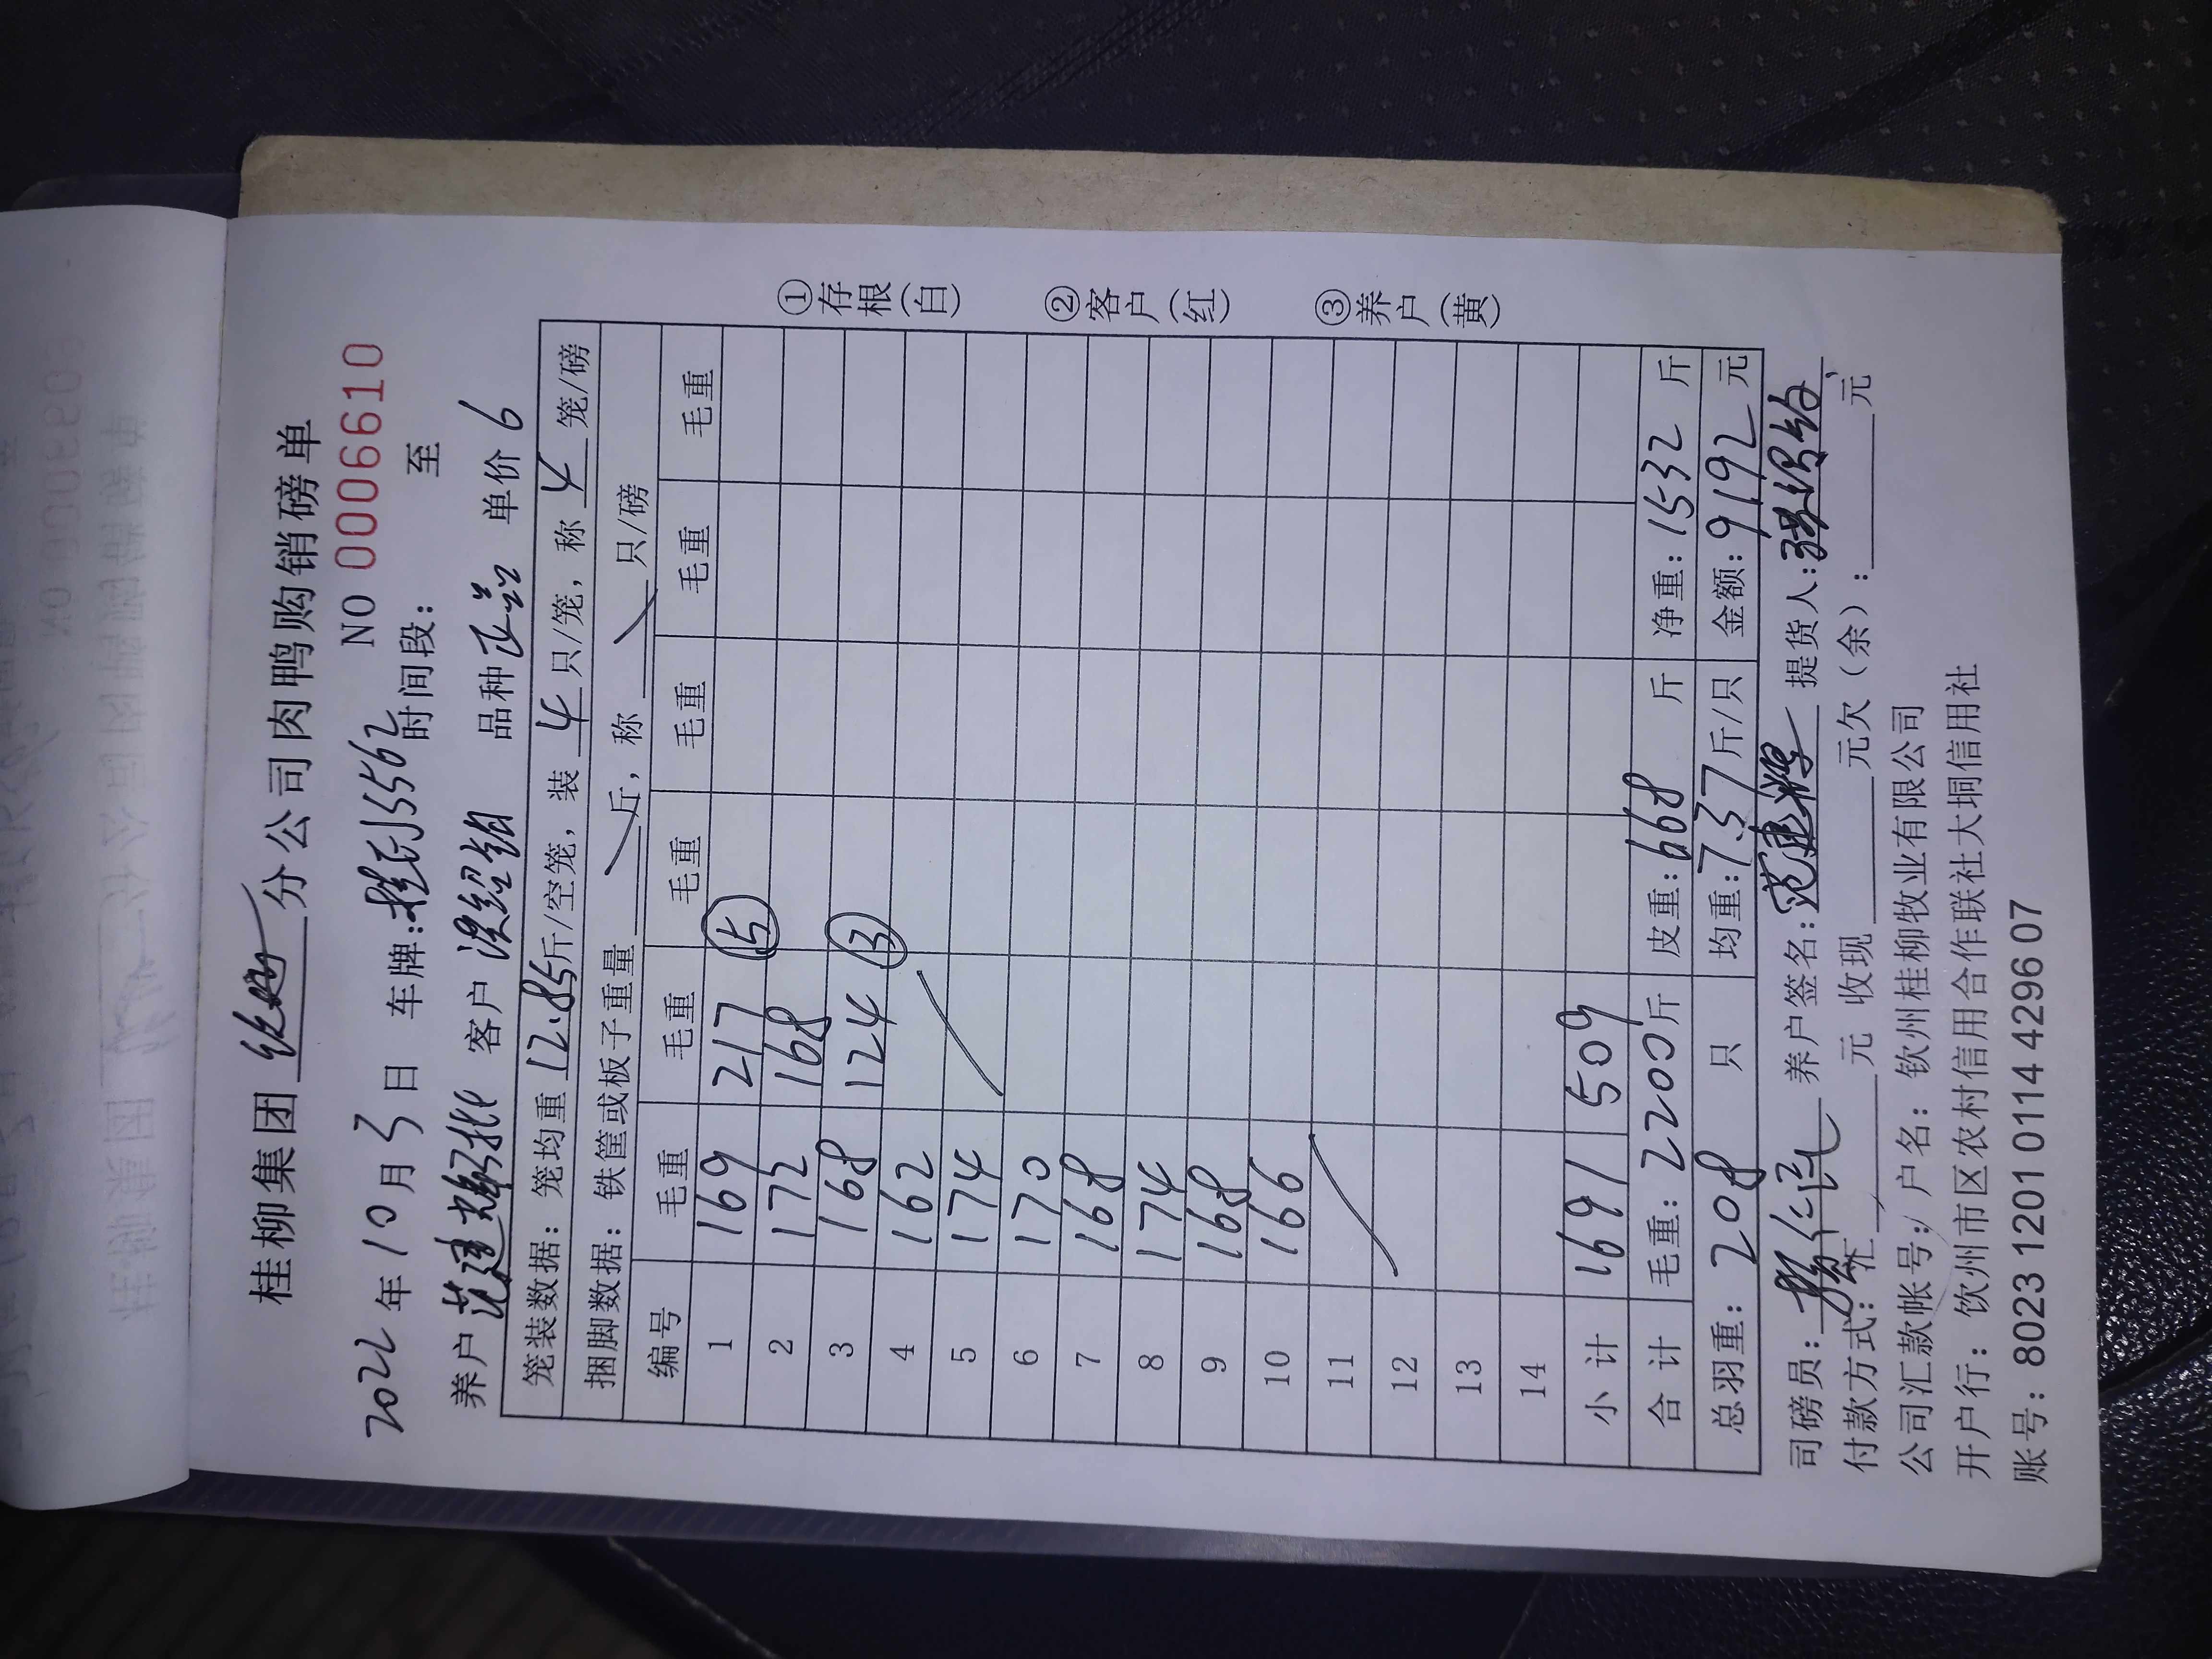 桂柳集团 分公司肉鸭购销磅单
NO 0006610
2022年10月3日 车牌: J5562 时间段: 至
养户 范建辉 客户 品种 正品 单价 6
笼装数据: 笼均重 12.85 斤/空笼, 装 4 只/笼, 称 4 笼/磅
捆脚数据: 铁筐或板子重量 斤, 称 只/磅
编号 毛重 毛重 毛重 毛重 毛重 毛重
1 169 217 ⑤
2 172 168
3 168 124 ③
4 162
5 174
6 170
7 168
8 174
9 168
10 166
11
12
13
14
小计 1691 509
合计 毛重: 2200 斤 皮重: 668 斤 净重: 1532 斤
总羽重: 208 只 均重: 7.37 斤/只 金额: 9192 元
司磅员: 养户签名: 范建辉 提货人:
付款方式: 汇 元 收现 元欠(余): 元
公司汇款帐号: 户名: 钦州桂柳牧业有限公司
开户行: 钦州市区农村信用合作联社大垌信用社
账号: 8023 1201 0114 4296 07
①存根(白)
②客户(红)
③养户(黄)